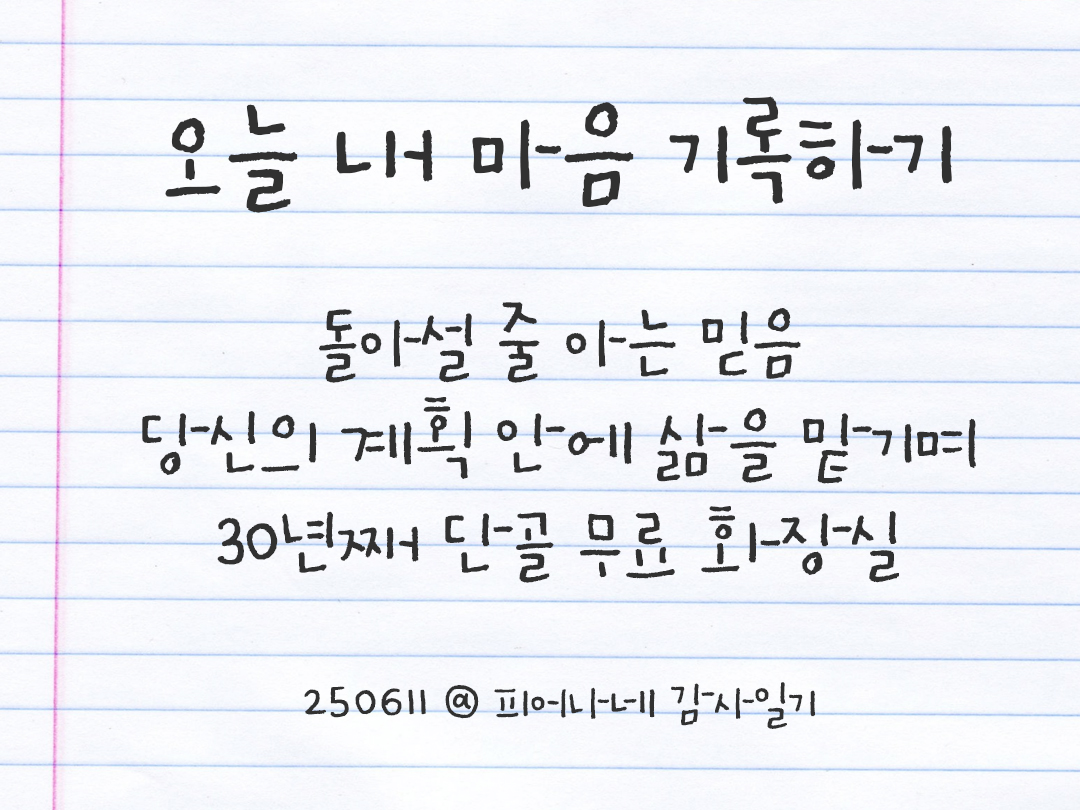 오늘 내 마음 기록하기
돌아설 줄 아는 믿음
당신의 계획 안에 삶을 맡기며
30년째 단골 무료 화장실
250611 @ 피어나네 감사일기